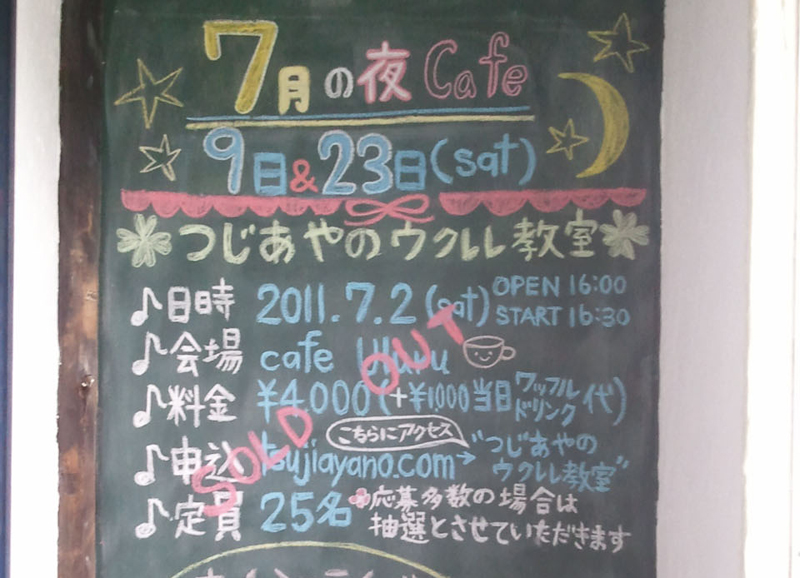 7月の夜Cafe
9日&23日(sat)
つじあやのウクレレ教室
♪日時 2011.7.2(sat) OPEN 16:00
START 16:30
♪会場 cafe Uluru
♪料金 ¥4,000(+¥1000当日ワッフルドリンク代)
こちらにアクセス
♪申込 tsujiayano.com→"つじあやの
ウクレレ教室"
♪定員 25名 応募多数の場合は
抽選とさせていただきます
SOLD OUT